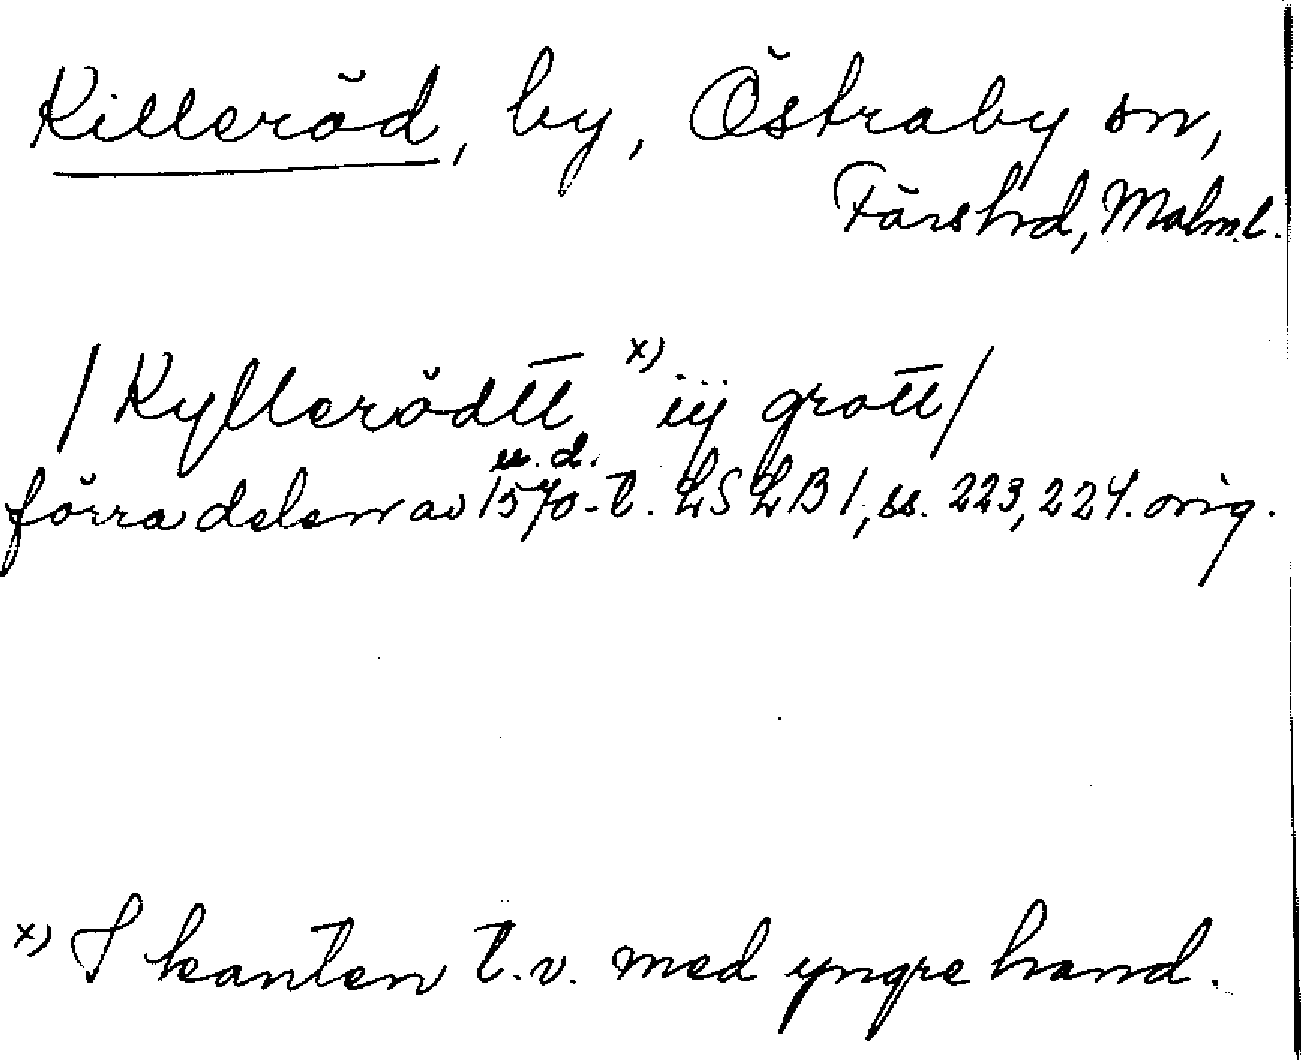 Killeröd, by, Östraby sn,
Färs hd, Malm.l.
/Kyllerödtt x) iij grott/
u.d.
förra delen av 1570-t. LSLB 1, ss. 223, 224. orig.
x) I kanten t.v. med yngre hand.